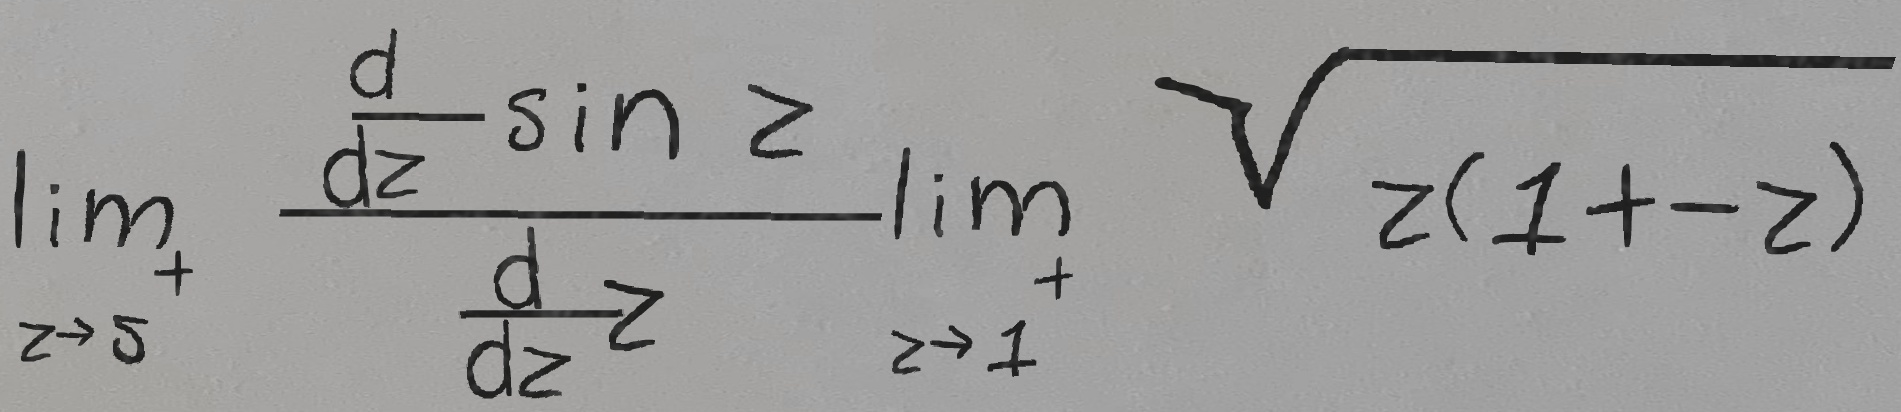 \lim_{z \to 5^+} \frac{\frac{d}{dz} \sin z}{\frac{d}{dz} z} \lim_{z \to 1^+} \sqrt{z(1+-z)}